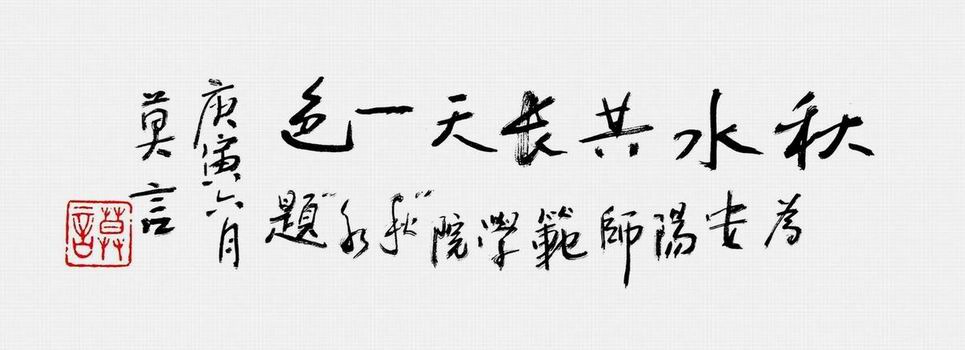 秋水共长天一色
為安陽師範學院"秋水"題
庚寅六月
莫言
莫言